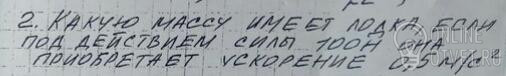 2. КАКУЮ МАССУ ИМЕЕТ ЛОДКА, ЕСЛИ
ПОД ДЕЙСТВИЕМ СИЛЫ 100Н ОНА
ПРИОБРЕТАЕТ УСКОРЕНИЕ 0,5 М/С²